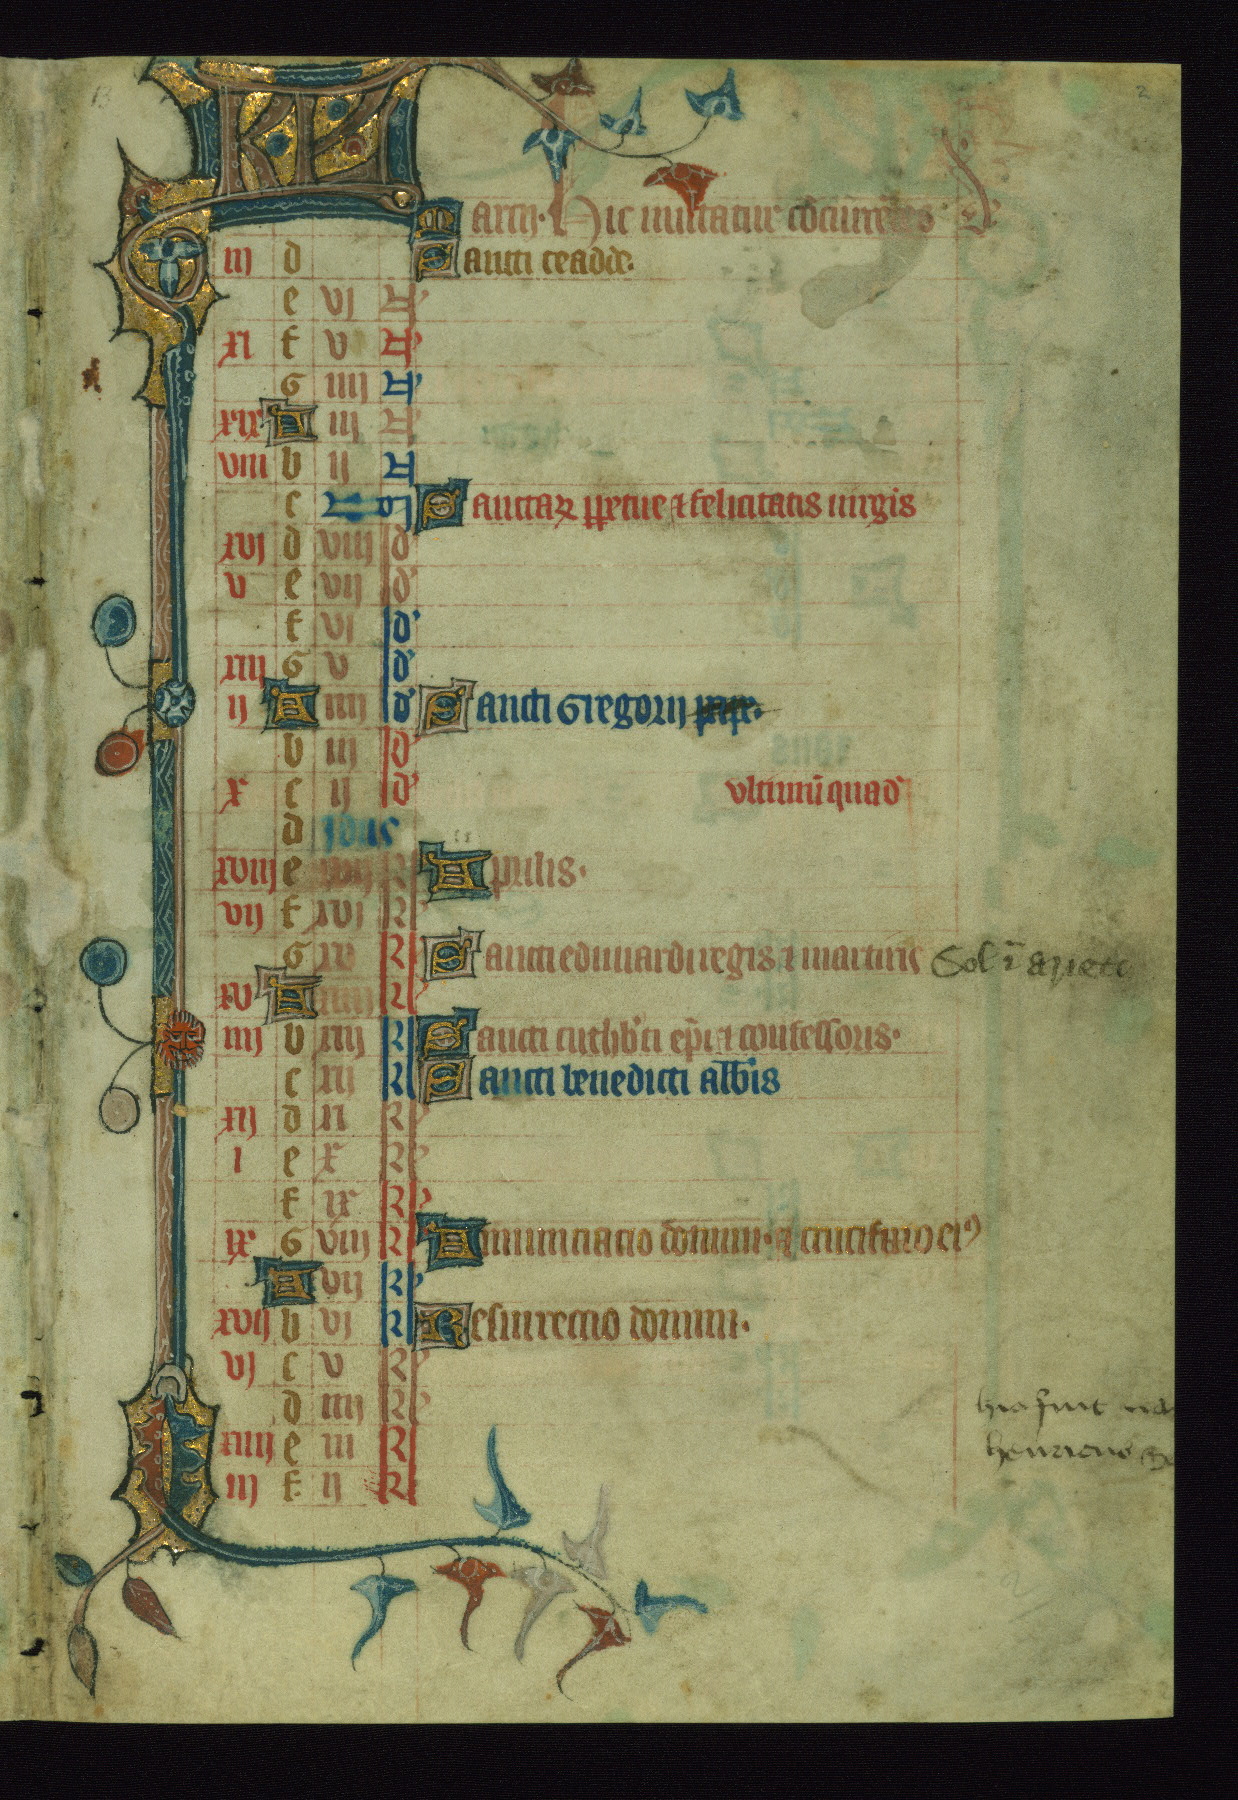 B
2
KL
Marcii. Hic mutatur concurrens
iii d Sancti ceadde.
e vj N'
xi f v N'
G iiii N'
xix A iii N'
viii b ii N'
c No Sanctarum perpetue & felicitatis uirgis
xvj d viii id'
v e vii id'
f vj id'
xiii G v id'
ij A iiij id' Sancti Gregorij pape.
b iij id'
x c ij id' vltimū quad'
d Idus
xviij e xvij kl' Aprilis.
vij f xvj kl'
G xv kl' Sancti eduuardi regis & martiris Sol ī ariete
xv A xiiij kl'
iiij b xiij kl' Sancti cuthb'ti ep̄i & confessoris.
c xij kl' Sancti benedicti abb̄is
xij d xi kl'
i e x kl'
f ix kl'
ix G viij kl' Annunciacio domini. & crucifixio ei9
A vij kl'
xvij b vj kl' Resurrectio domini.
vj c v kl'
d iiij kl'
xiiij e iii kl'
iij f ij kl'
henricus